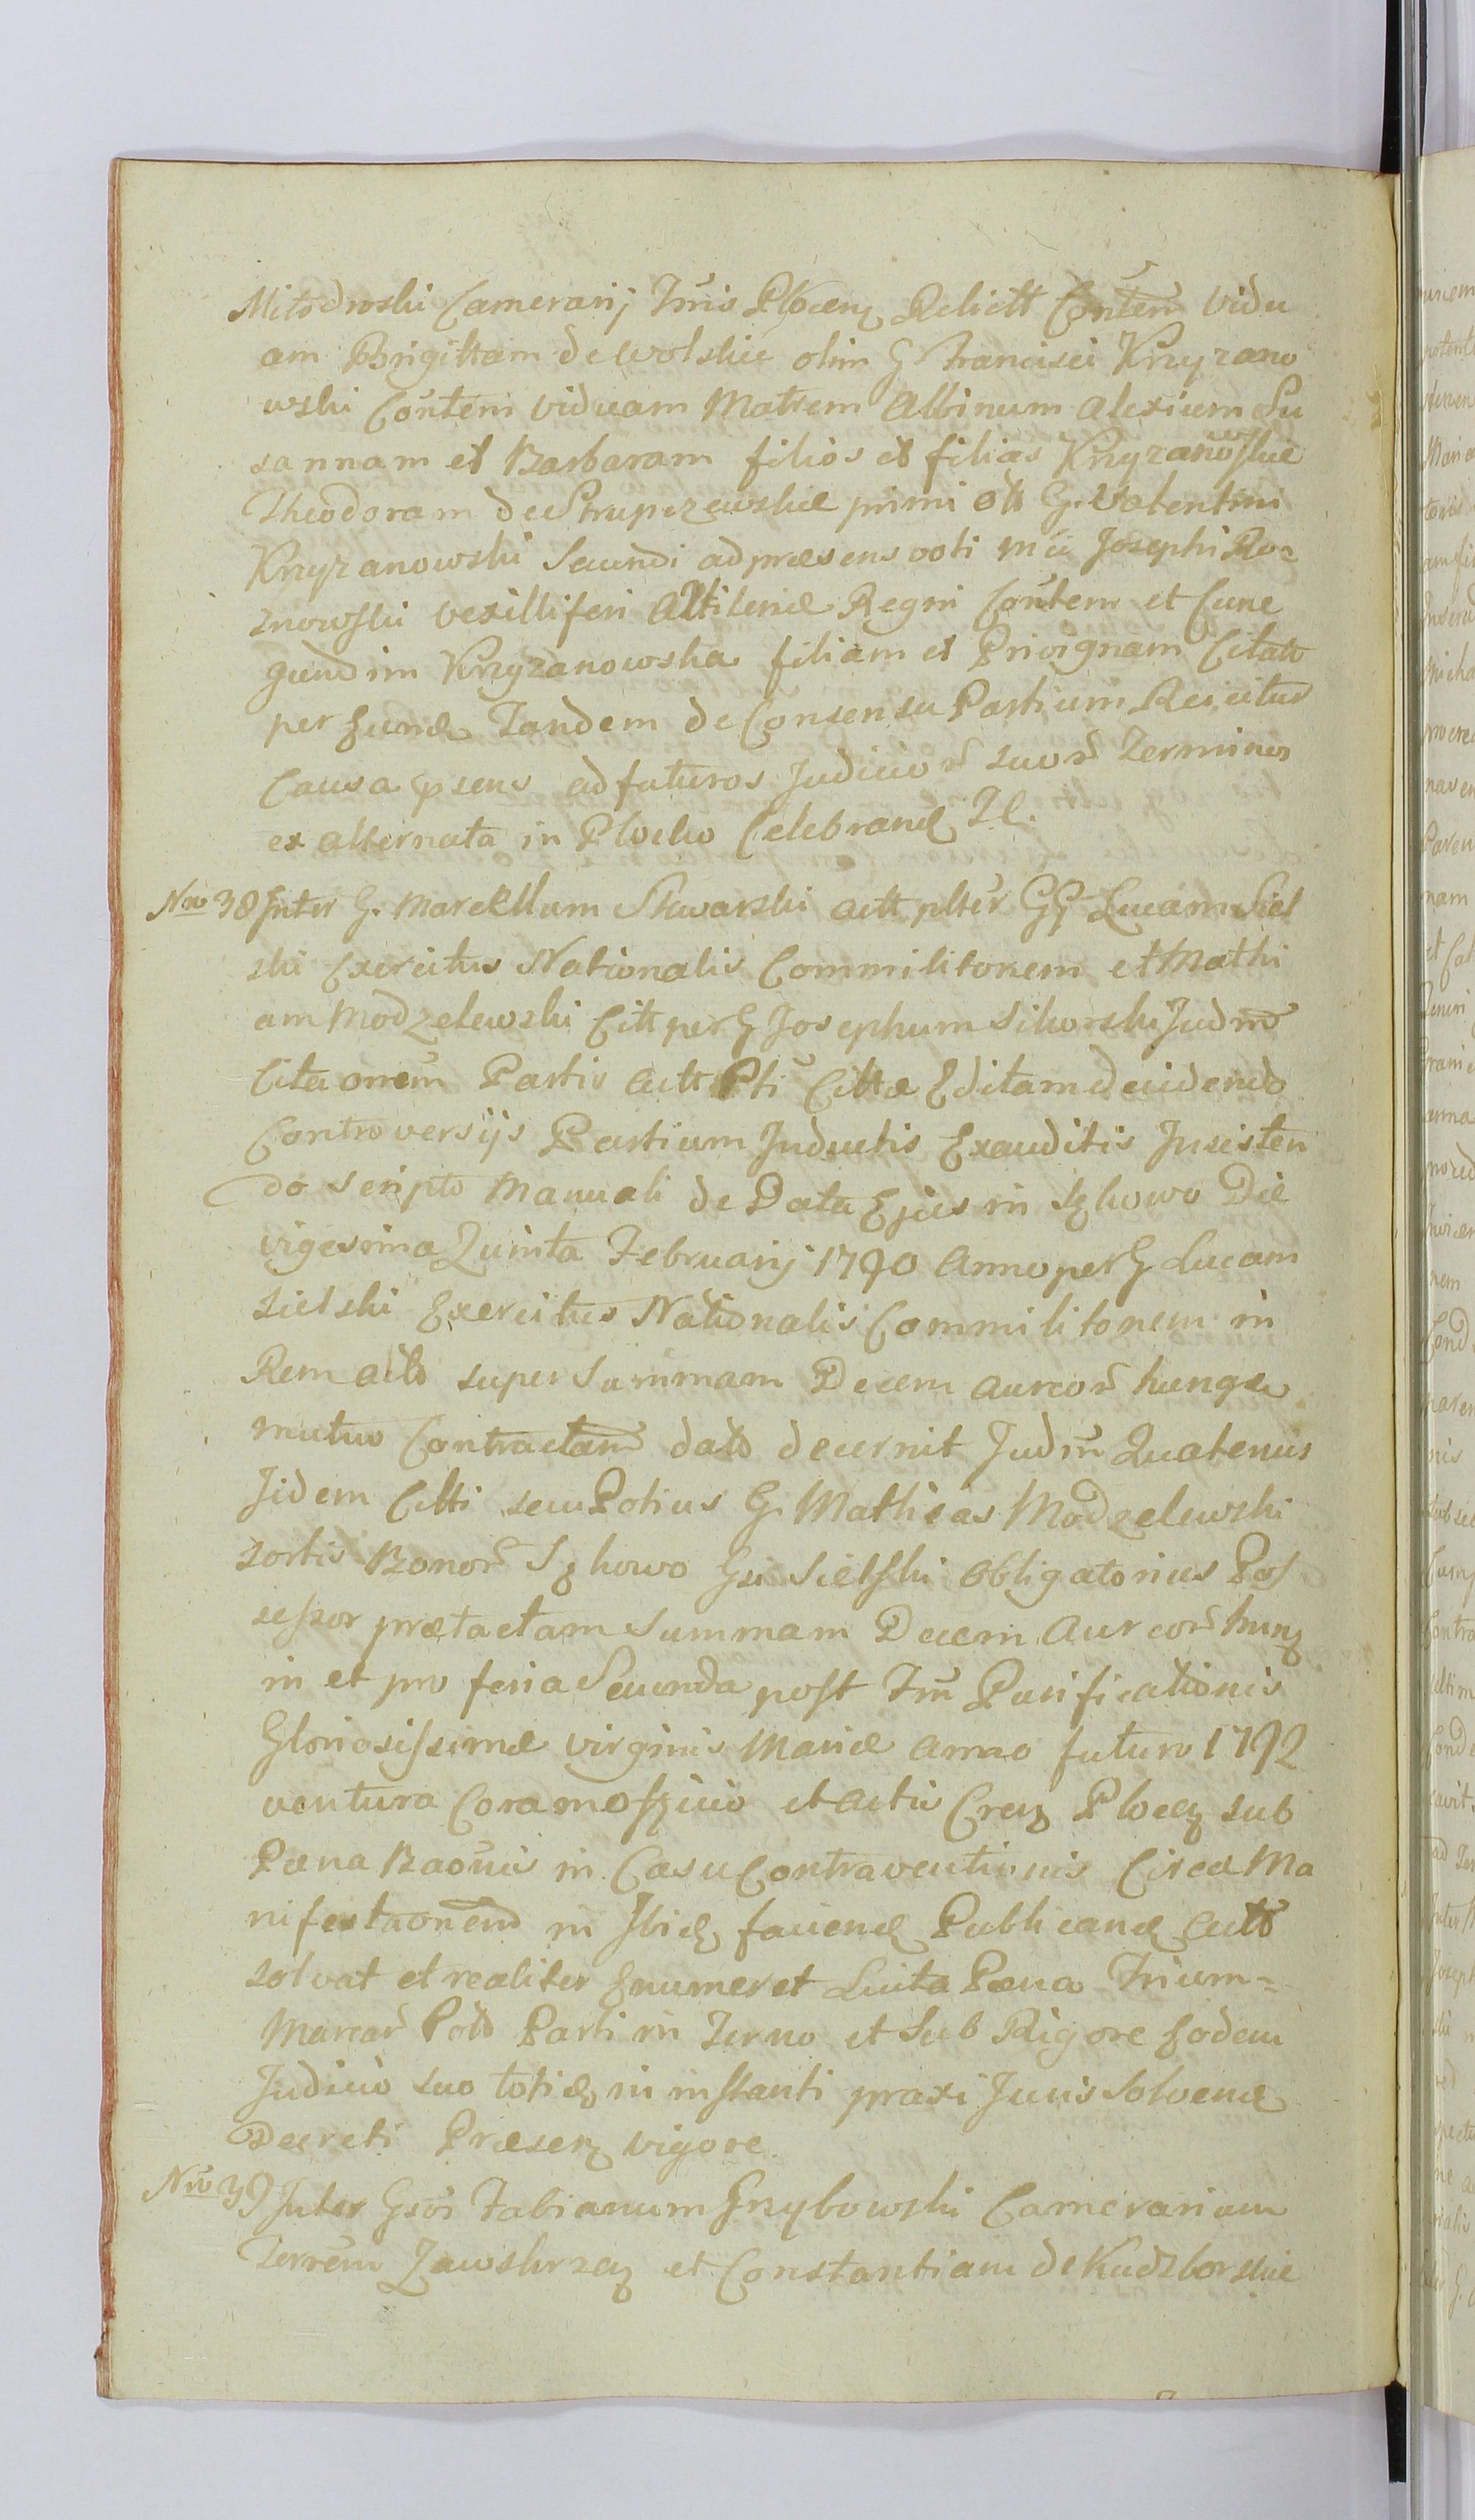 Mitodroski Camerarij Tris Plocen Relictt Conten Vidu
am Brigittam de Wolskie olim G. Francisci Krzyzano
wski Conten viduam Matrem Albinum Alexium Su
sannam et Barbaram filios et filias Krzyzanowskie
Theodoram de Strupczewskie primi ott G. Valentini
Krzyzanowski Secundi ad præsens voti Josephi Ro=
znowski vexilliferi Regni Conten et Cune
gundim Krzyzanowska filiam et Privignam Citato
per Tandem de Consensu Partium Reicitur
Causa psens ad futuros Judicior suor Terminos
ex alternata in Plocko Celebrand
Nro 38 Inter G. Marcellum Skwarski actt plter GG Lucam Siel
ski Exercitus Nationalis Commilitonem et Mathi
am Modzelewski Citt per G Josephum Sikorski Judm
Citaonem Partis actt Citta Editam decidendo
Controversijs Partium Inductis Exauditis Insisten
do scripto Manuali de Data Ejus in Die
vigesima Quinta Februarij 1790 Anno per G Lucam
Sielski Exercitus Nationalis Commilitonem in
Rem acto super Summam Decem aureor hung
mutuo Contractam dato decernit Judm Quatenus
Iidem Citti seu Potius G. Mathias Modzelewski
sortis Bonor Gsi Sielski obligatorius Pos
sessor prætactam Summam Decem Aureor hung
in et pro feria Secunda post Tm Purificationis
Gloriosissimæ virginis Mariæ anno futuro 1792
ventura Coram Officio et actis Plocen sub
Pæna Baonis in Casu Contraventionis Circa Ma
nifestaonem in Ibid faciend Publicand actt
solvat et realiter Enumeret Luita Pæna Trium=
Marcar Parti in Terno et Sub Rigore Eodem
Judicio suo totid in instanti praxi Juris Solvend
Decreti Præsen vigore.
Nro 39 Inter Gsos Fabianum Grzybowski Camerarium
Terrem Zawskrzen et Constantiam de Kudzborskie